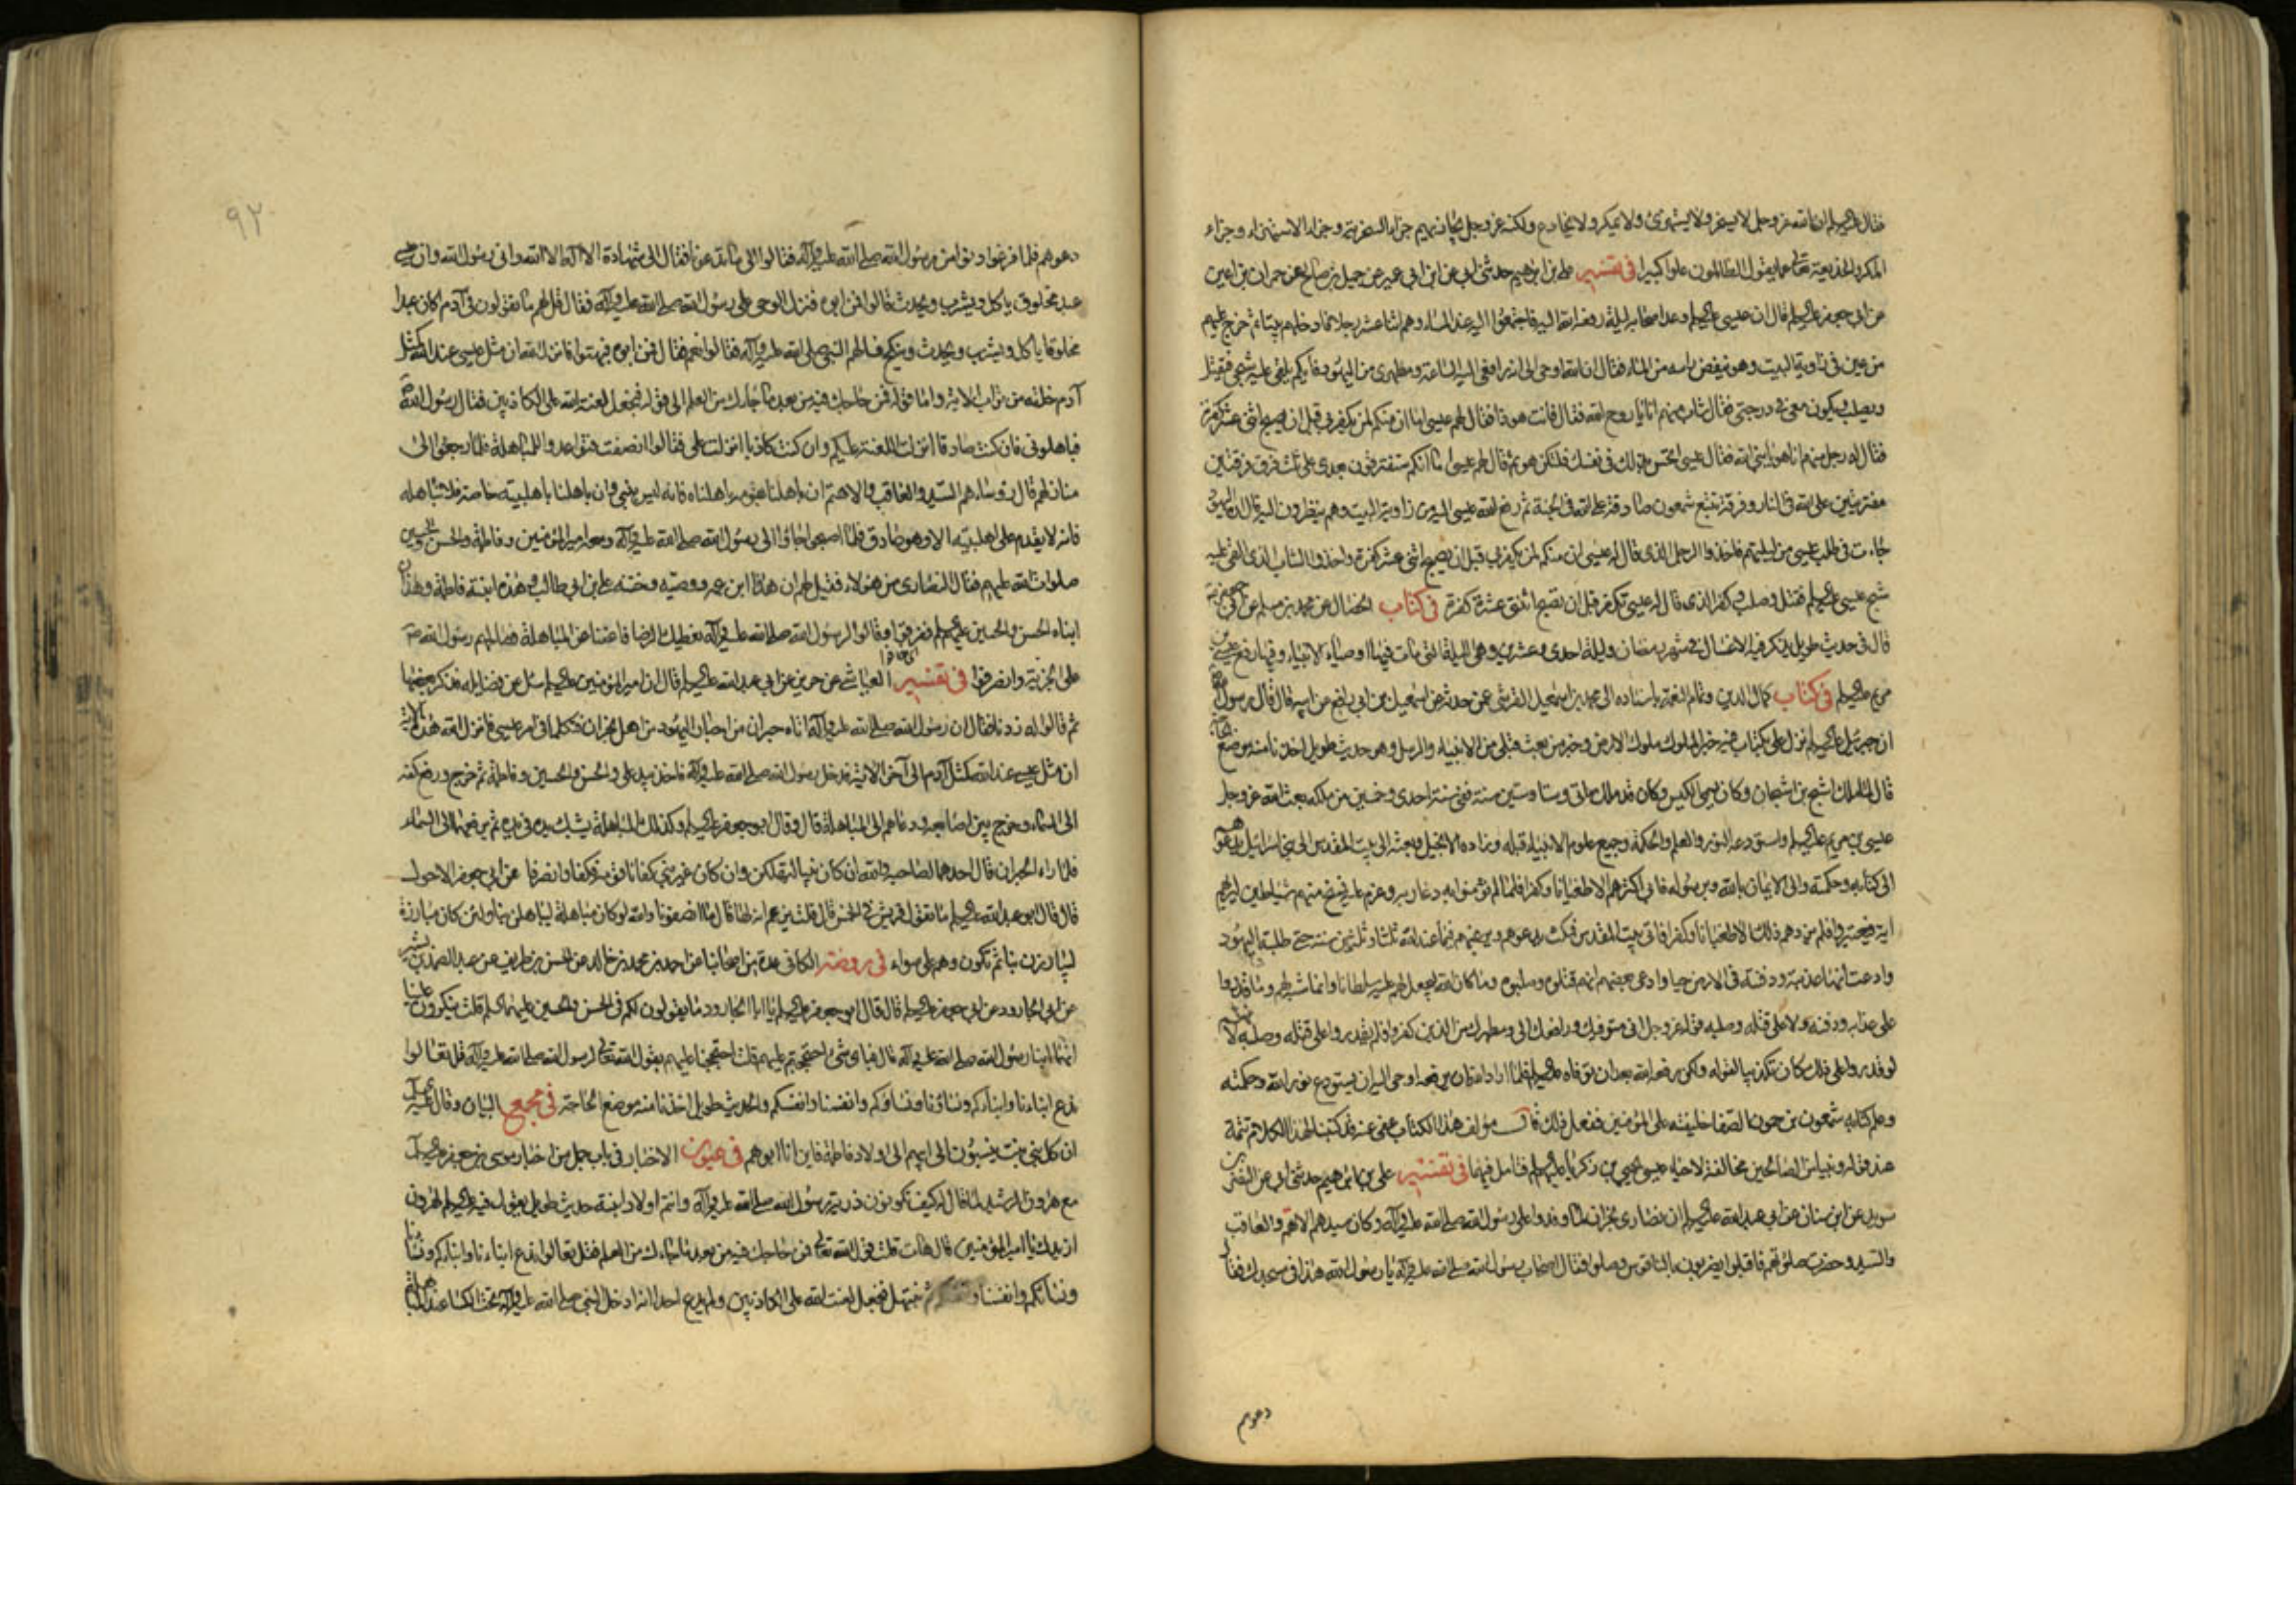 فقال عليه السلم ان الله عز وجل لا يسخر ولا يستهزئ ولا يمكر ولا يخادع ولكنه عز وجل يجازيهم جزاء السخرية وجزاء الاستهزاء وجزاء
المكر والخديعة تعالى عما يقول الظالمون علوا كبيرا في تفسير علي بن ابرهيم حدثني ابي عن ابن ابي عمير عن جميل بن صالح عن حمران بن اعين
عن ابي جعفر عليه السلم قال ان عيسى عليه السلم وعد اصحابه ليلة رفعه الله اليه فاجتمعوا اليه عند المساء وهم اثنا عشر رجلا فادخلهم بيتا ثم خرج عليهم
من عين في زاوية البيت وهو ينفض راسه من الماء فقال ان الله اوحى الى انه رافعي اليه الساعة ومطهري من اليهود فايكم يلقى عليه شبحي فيقتل
ويصلب ويكون معي في درجتي فقال شاب منهم انا يا روح الله فقال فانت هوذا فقال لهم عيسى اما ان منكم لمن يكفر بي قبل ان يصبح اثنى عشر كفرة
فقال له رجل منهم انا هو يا نبي الله فقال عيسى اتحس بذلك في نفسك فلتكن هو ثم قال لهم عيسى اما انكم ستفترقون بعدي على ثلث فرق فرقتين
مفتريتين على الله في النار وفرقة تتبع شمعون صادقة على الله في الجنة ثم رفع الله عيسى اليه من زاوية البيت وهم ينظرون اليه ثم قال ان اليهود
جاءت في طلب عيسى من ليلتهم فاخذوا الرجل الذي قال له عيسى ان منكم لمن يكفر بي قبل ان يصبح اثنى عشر كفرة واخذوا الشاب الذي القي عليه
شبح عيسى عليه السلم فقتل وصلب وكفر الذي قال له عيسى تكفر قبل ان تصبح اثنتى عشرة كفرة في كتاب الخصال عن محمد بن مسلم عن ابي جعفر
قال في حديث طويل يذكر فيه الاغسال في شهر رمضان وليلة احدى وعشرين وهي الليلة التي مات فيها اوصياء الانبياء وفيها رفع عيسى بن
مريم عليه السلم في كتاب كمال الدين وتمام النعمة باسناده الى محمد بن اسمعيل القرشي عمن حدثه عن اسمعيل بن ابي رافع عن ابيه قال قال رسول الله
ان جبرئيل عليه السلم نزل علي بكتاب فيه خبر الملوك ملوك الارض وخبر من بعث قبلي من الانبياء والرسل وهو حديث طويل اخذنا منه موضع الحاجة
قال لما ملك اشبح بن اشجان وكان يسمى الكيس وكان قد ملك مائتي وستا وستين سنة ففي سنة احدى وخمسين من ملكه بعث الله عز وجل
عيسى بن مريم عليه السلم واستودعه النور والعلم والحكمة وجميع علوم الانبياء قبله وزاده الانجيل وبعثه الى بيت المقدس الى بني اسرائيل يدعوهم
الى كتابه وحكمته والى الايمان بالله وبرسوله فابى اكثرهم الا طغيانا وكفرا فلما لم يؤمنوا به دعا ربه وعزم عليه فمسخ منهم شياطين ليريهم
اية فيعتبروا فلم يزدهم ذلك الا طغيانا وكفرا فاتى بيت المقدس فمكث يدعوهم ويرغبهم فيما عند الله ثلثا وثلثين سنة حتى طلبته اليهود
وادعت انها عذبته ودفنته في الارض حيا وادعى بعضهم انهم قتلوه وصلبوه وما كان الله ليجعل لهم عليه سلطانا وانما شبه لهم وما قدروا
على عذابه ودفنه ولا على قتله وصلبه قوله عز وجل اني متوفيك ورافعك الي ومطهرك من الذين كفروا فلم يقدروا على قتله وصلبه لانهم
لو قدروا على ذلك كان تكذيبا لقوله ولكن رفعه الله بعد ان توفاه عليه السلم فلما اراد الله ان يرفعه اوحى اليه ان يستودع نور الله وحكمته
وعلم كتابه شمعون بن حمون الصفا خليفته على المؤمنين ففعل ذلك قال مؤلف هذا الكتاب عفي عنه قد كتبنا لهذا الكلام تتمة
عند قوله ونبيا من الصالحين مخالفة لاحياء عيسى يحيى بن زكريا عليهم السلم فتامل فيها في تفسير علي بن ابرهيم حدثني ابي عن النضر بن
سويد عن ابن سنان عن ابي عبد الله عليه السلم ان نصارى نجران لما وفدوا على رسول الله صلى الله عليه وآله وكان سيدهم الاهتم والعاقب
والسيد وحضرت صلوتهم فاقبلوا يضربون بالناقوس وصلوا فقال اصحاب رسول الله صلى الله عليه وآله يا رسول الله هذا في مسجدك فقال
دعوهم
٩٢
دعوهم فلما فرغوا دنوا من رسول الله صلى الله عليه وآله فقالوا الى ما تدعونا فقال الى شهادة الا اله الا الله واني رسول الله وان عيسى
عبد مخلوق ياكل ويشرب ويحدث قالوا فمن ابوه فنزل الوحي على رسول الله صلى الله عليه وآله فقال قل لهم ما تقولون في آدم اكان عبدا
مخلوقا ياكل ويشرب ويحدث وينكح فسالهم النبي صلى الله عليه وآله فقالوا نعم فقال فمن ابوه فبهتوا فانزل الله ان مثل عيسى عند الله كمثل
آدم خلقه من تراب الآية واما قوله فمن حاجك فيه من بعد ما جاءك من العلم الى قوله فنجعل لعنة الله على الكاذبين فقال رسول الله
فباهلوني فان كنت صادقا انزلت اللعنة عليكم وان كنت كاذبا انزلت علي فقالوا انصفت فتواعدوا للمباهلة فلما رجعوا الى
منازلهم قال رؤساءهم السيد والعاقب والاهتم ان باهلنا بقومه باهلناه فانه ليس بنبي وان باهلنا باهلبيته خاصة فلا نباهله
فانه لا يقدم على اهلبيته الا وهو صادق فلما اصبحوا جاؤا الى رسول الله صلى الله عليه وآله ومعه امير المؤمنين وفاطمة والحسن والحسين
صلوات الله عليهم فقال النصارى من هؤلاء فقيل لهم ان هذا ابن عمه ووصيه وختنه علي بن ابي طالب وهذه ابنته فاطمة وهذان
ابناه الحسن والحسين عليهم السلم ففرقوا وقالوا لرسول الله صلى الله عليه وآله نعطيك الرضا فاعفنا عن المباهلة فصالحهم رسول الله
على الجزية وانصرفوا في تفسير العياشي عن حريز عن ابي عبد الله عليه السلم قال ان امير المؤمنين عليه السلم سئل عن فضايله فذكر بعضها
ثم قالوا له زدنا فقال ان رسول الله صلى الله عليه وآله اتاه حبران من احبار اليهود من اهل نجران فتكلما في امر عيسى فانزل الله هذه الآية
ان مثل عيسى عند الله كمثل آدم الى آخر الآية فدخل رسول الله صلى الله عليه وآله فاخذ بيد علي والحسن والحسين وفاطمة ثم خرج ورفع كفه
الى السماء وفرج بين اصابعه ودعاهم الى المباهلة قال وقال ابو جعفر عليه السلم وكذلك المباهلة يشبك يده في يده ثم يرفعها الى السماء
فلما رءاه الحبران قال احدهما لصاحبه والله ان كان نبيا لنهلكن وان كان غير نبي كفانا قومه فكفا وانصرفا عن ابي جعفر الاحول
قال قال ابو عبد الله عليه السلم ما تقول قريش في الخمس قال قلت تزعم انه لها قال ما انصفونا والله لو كان مباهلة ليباهلن بنا ولئن كان مبارزة
ليبارزن بنا ثم نكون وهم على سواء في روضة الكافي عدة من اصحابنا عن احمد بن محمد بن خالد عن الحسن بن ظريف عن عبد الصمد بن بشير
عن ابي الجارود عن ابي جعفر عليه السلم قال قال ابو جعفر عليه السلم يا ابا الجارود ما يقولون لكم في الحسن والحسين عليهما السلم قلت ينكرون علينا
انهما ابنا رسول الله صلى الله عليه وآله قال فباي شئ احتججتم عليهم قلت احتججنا عليهم بقول الله تعالى لرسول الله صلى الله عليه وآله قل تعالوا
ندع ابناءنا وابناءكم ونساءنا ونساءكم وانفسنا وانفسكم والحديث طويل اخذنا منه موضع الحاجة في مجمع البيان وقال عليه السلم
ان كل بني بنت ينسبون الى ابيهم الا اولاد فاطمة فاني انا ابوهم في عيون الاخبار في باب جمل من اخبار موسى بن جعفر عليه السلم
مع هرون الرشيد لما قال له كيف تكونون ذرية رسول الله صلى الله عليه وآله وانتم اولاد ابنته حديث طويل يقول فيه عليه السلم لهرون
ازيدك يا امير المؤمنين قال هات قلت قول الله تعالى فمن حاجك فيه من بعد ما جاءك من العلم فقل تعالوا ندع ابناءنا وابناءكم ونساءنا
ونساءكم وانفسنا وانفسكم ثم نبتهل فنجعل لعنت الله على الكاذبين ولم يدع احد انه ادخل النبي صلى الله عليه وآله تحت الكساء عند المباهلة